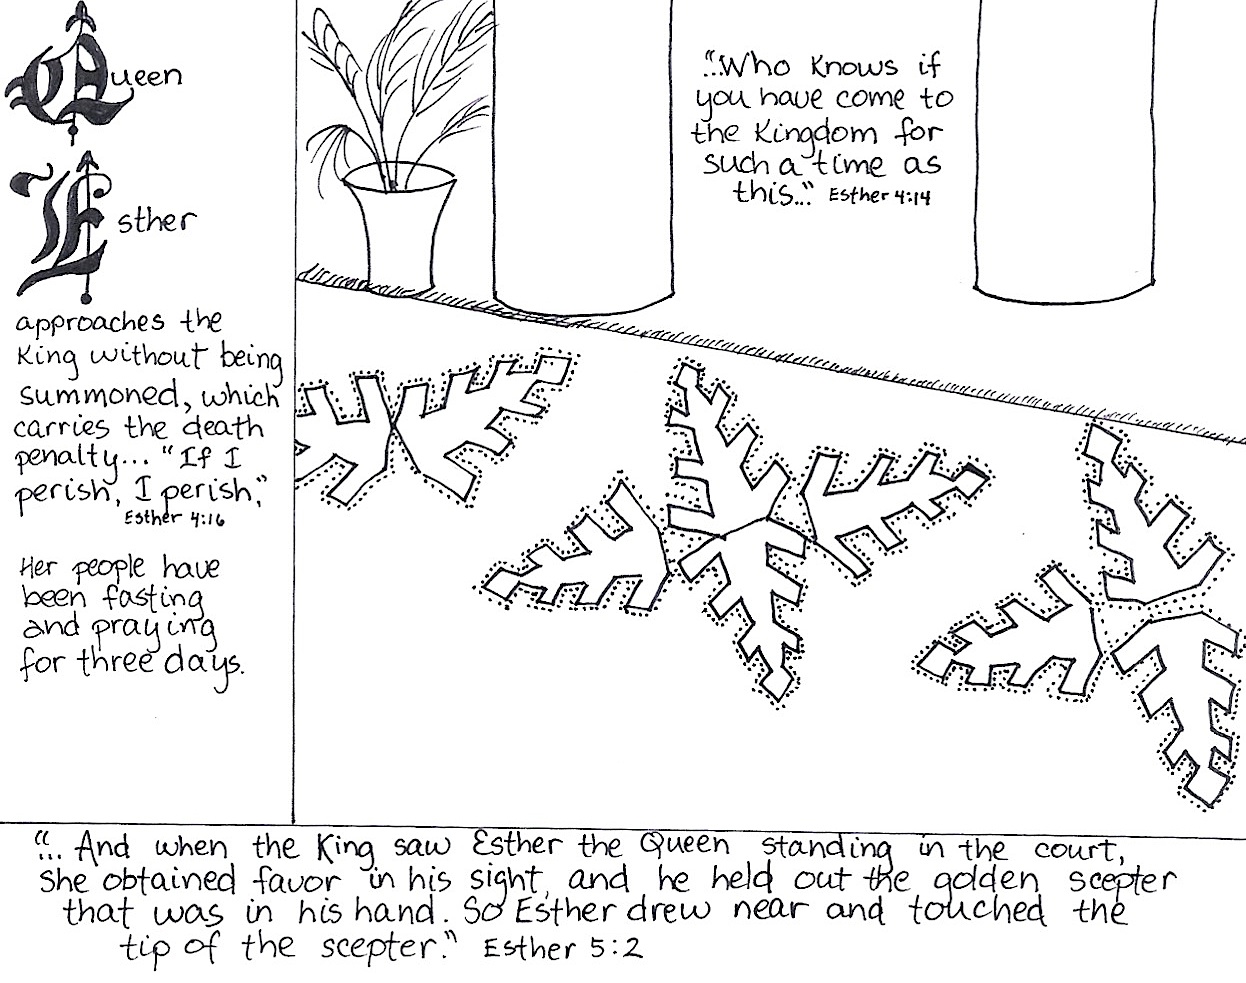 Queen
Esther
approaches the
King without being
summoned, which
carries the death
penalty... "If I
perish, I perish."
Esther 4:16
Her people have
been fasting
and praying
for three days.
"...Who Knows if
you have come to
the Kingdom for
such a time as
this..." Esther 4:14
"... And when the King saw Esther the Queen standing in the court,
she obtained favor in his sight, and he held out the golden scepter
that was in his hand. So Esther drew near and touched the
tip of the scepter." Esther 5:2